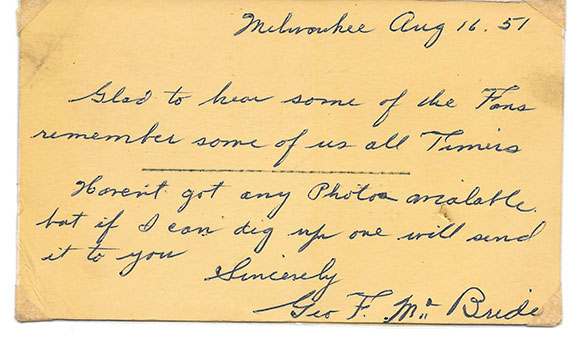 Milwaukee Aug 16. 51
Glad to hear some of the Fans
remember some of us all Timers
Haven't got any Photos avialable.
but if I can dig up one will send
it to you
Sincerely
Geo F. Mc Bride